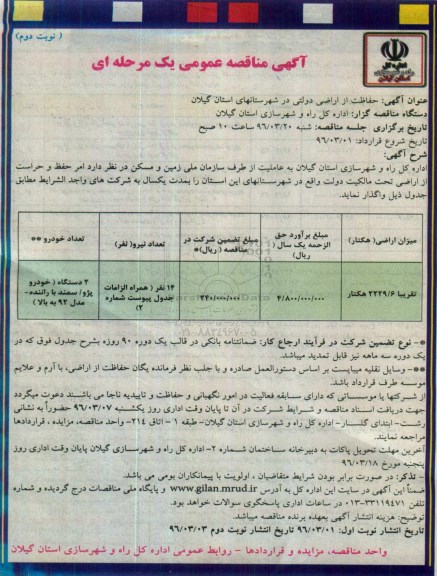 ( نوبت دوم)
آگهی مناقصه عمومی یک مرحله ای
عنوان آگهی: حفاظت از اراضی دولتی در شهرستانهای استان گیلان
دستگاه مناقصه گزار: اداره کل راه و شهرسازی استان گیلان
تاریخ برگزاری جلسه مناقصه: شنبه ۹۶/۰۳/۲۰ ساعت ۱۰ صبح
تاریخ شروع قرارداد: ۹۶/۰۳/۰۱
شرح آگهی:
اداره کل راه و شهرسازی استان گیلان به عاملیت از طرف سازمان ملی زمین و مسکن در نظر دارد امر حفظ و حراست
از اراضی تحت مالکیت دولت واقع در شهرستانهای این استان را بمدت یکسال به شرکت های واجد الشرایط مطابق
جدول ذیل واگذار نماید.
میزان اراضی( هکتار) مبلغ برآورد حق الزحمه یک سال ( ریال) مبلغ تضمین شرکت در مناقصه ( ریال)* تعداد نیرو( نفر) تعداد خودرو **
تقریبا ۲۲۲۹/۶ هکتار ۴/۸۰۰/۰۰۰/۰۰۰ ۲۴۰/۰۰۰/۰۰۰ ۱۴ نفر ( همراه الزامات جدول پیوست شماره ۲) ۲ دستگاه ( خودرو پژو/ سمند با راننده- مدل ۹۲ به بالا )
*- نوع تضمین شرکت در فرآیند ارجاع کار: ضمانتنامه بانکی در قالب یک دوره ۹۰ روزه بشرح جدول فوق که در
یک دوره سه ماهه نیز قابل تمدید میباشد.
**- وسایل نقلیه میبایست بر اساس دستورالعمل صادره و با جلب نظر فرمانده یگان حفاظت از اراضی، با آرم و علایم
موسسه طرف قرارداد باشد.
از شرکتها یا موسساتی که دارای سابقه فعالیت در امور نگهبانی و حفاظت و تاییدیه ناجا می باشند دعوت میگردد
جهت دریافت اسناد مناقصه و شرایط شرکت در آن تا پایان وقت اداری روز یکشنبه ۹۶/۰۳/۰۷ حضوراً به نشانی
رشت- ابتدای گلسار- اداره کل راه و شهرسازی استان گیلان- طبقه ۱ - اتاق ۲۱۴- واحد مناقصه، مزایده ، قراردادها
مراجعه نمایند.
آخرین مهلت تحویل پاکات به دبیرخانه ساختمان شماره ۲- اداره کل راه و شهرسازی گیلان پایان وقت اداری روز
پنجنبه مورخ ۹۶/۰۳/۱۸
- تذکر: در صورت برابر بودن شرایط متقاضیان ، اولویت با پیمانکاران بومی می باشد.
ضمناً این آگهی در سایت این اداره کل به آدرس www.gilan.mrud.ir و پایگاه ملی مناقصات درج گردیده و شماره
تلفن ۳۳۱۱۹۴۷۱-۰۱۳ در ساعات اداری پاسخگوی سوالات خواهد بود.
توضیح: هزینه انتشار آگهی بعهده برنده مناقصه میباشد.
تاریخ انتشار نوبت اول: ۹۶/۰۳/۰۱ تاریخ انتشار نوبت دوم ۹۶/۰۳/۰۳
واحد مناقصه، مزایده و قراردادها - روابط عمومی اداره کل راه و شهرسازی استان گیلان